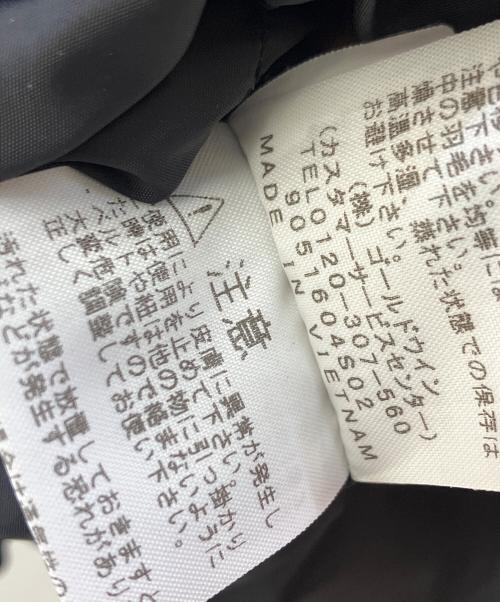 注意
中の羽毛を
燥させて下さい。蒸れた状態での保存は
お避け下さい。
(株) ゴールドウイン
(カスタマーサービスセンター)
TEL0120-307-560
9051604502
MADE IN VIETNAM
注意
使用により皮膚に異常が発生し
た時は使用を止めて下さい。
ベルトや紐は他の物に引っ掛かり
大変危険ですので絡まないように
正しく調整してお使い下さい。
汚れた状態で放置しておきますと
などが発生する恐れがあり